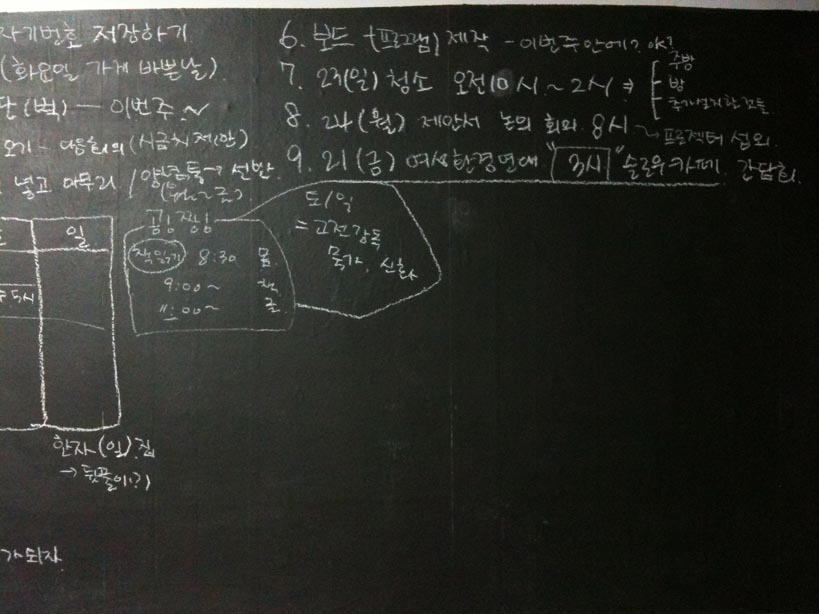 자기번호 저장하기
(화요일 가게 바쁜날)
단(벽) — 이번주 ~
오기 - 다음회의 (시금치 제안)
넣고 마무리 / 양념통 → 선반
6. 보드 (프로그램) 제작 - 이번주안에?
7. 23(일) 청소 오전10시~2시 ⇒
주방
방
8. 24(월) 제안서 논의 회의 8시 → 프로젝터 섭외
9. 21(금) 여세한경연대 "3시" 슬로우카페 간담회.
일
5시
책읽기 8:30
9:00 ~ 책,
11:00 ~ 글
토/일
= 고전강독
목가, 신화
한자(일) 집
→ 뒷풀이(?)
가되자.